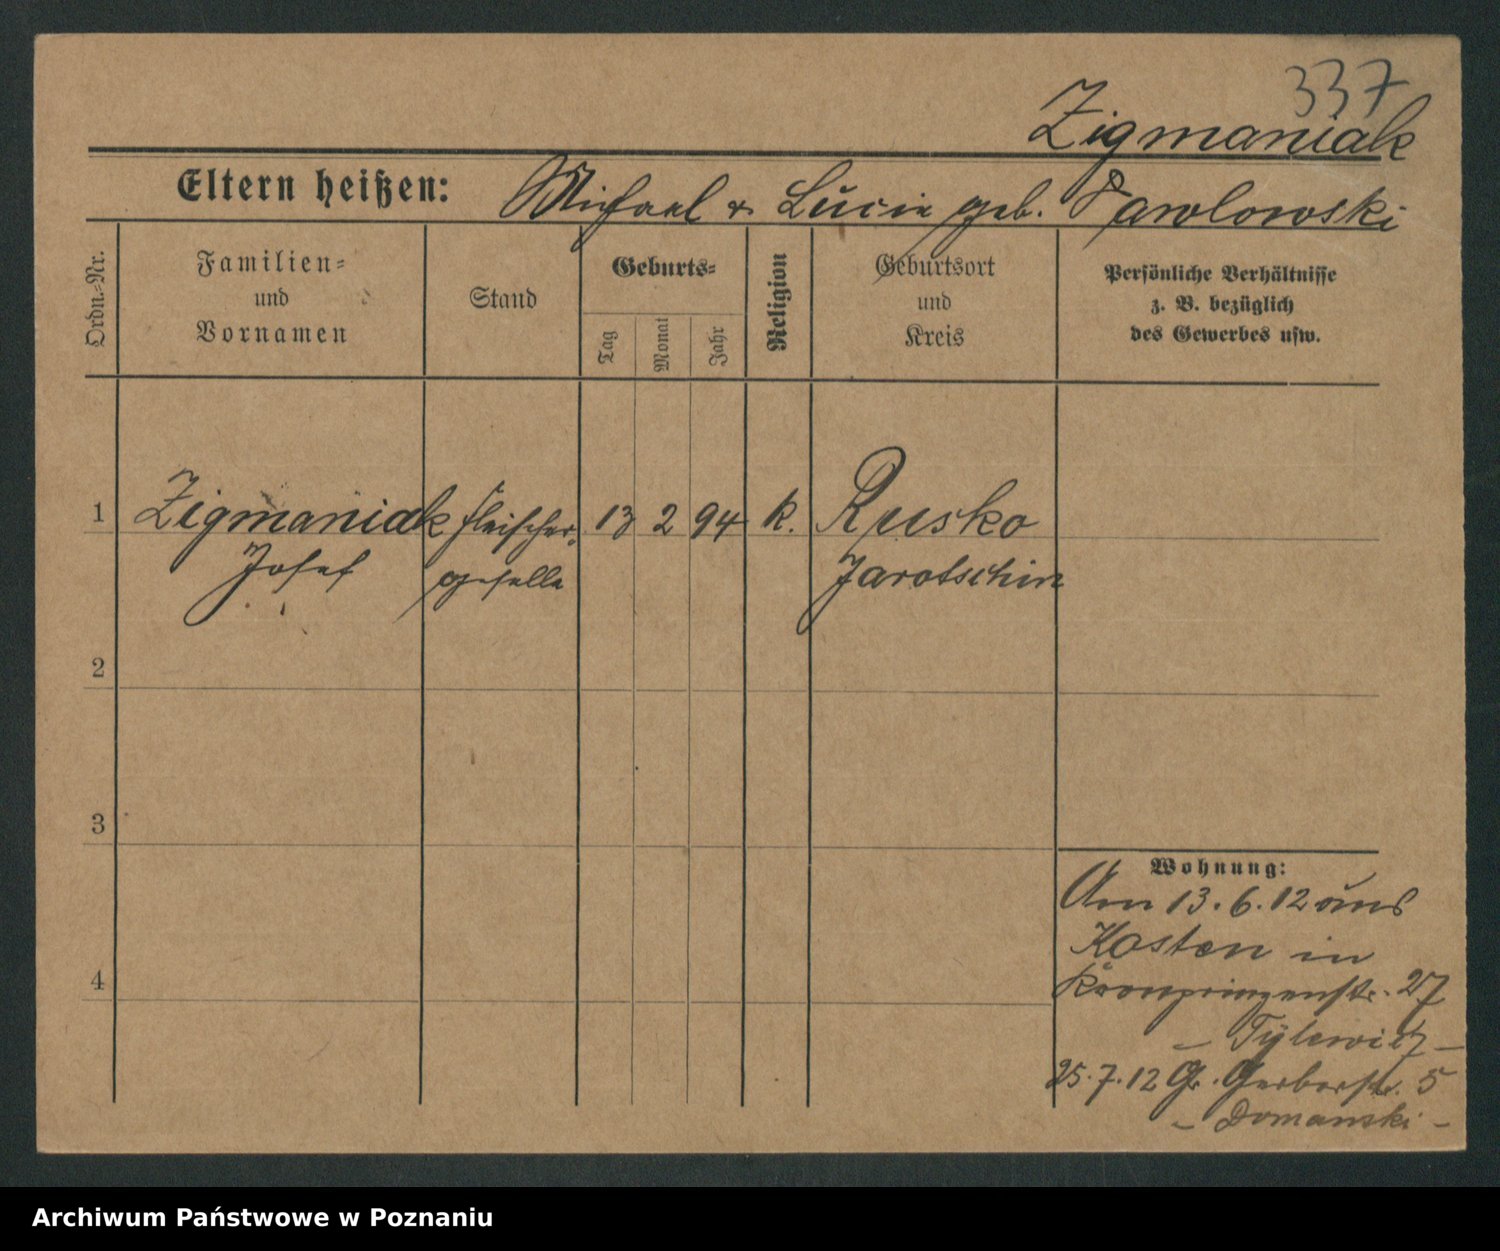 337
Zigmaniak
Eltern heißen: Michael & Lucie geb. Pawlowski
Ordn.-Nr.
Familien-
und
Vornamen
Stand
Geburts-
Tag
Monat
Jahr
Religion
Geburtsort
und
Kreis
Persönliche Verhältnisse
z. B. bezüglich
des Gewerbes usw.
1 Zigmaniak Fleischer- 13 2 94 k. Rusko
Josef geselle Jarotschin
2
3
4
Wohnung:
Am 13.6.12 aus
Kosten in
Kronprinzenstr. 27
– Tylewicz –
25.7.12 Gr. Gerberstr. 5
– Domanski –
Archiwum Państwowe w Poznaniu